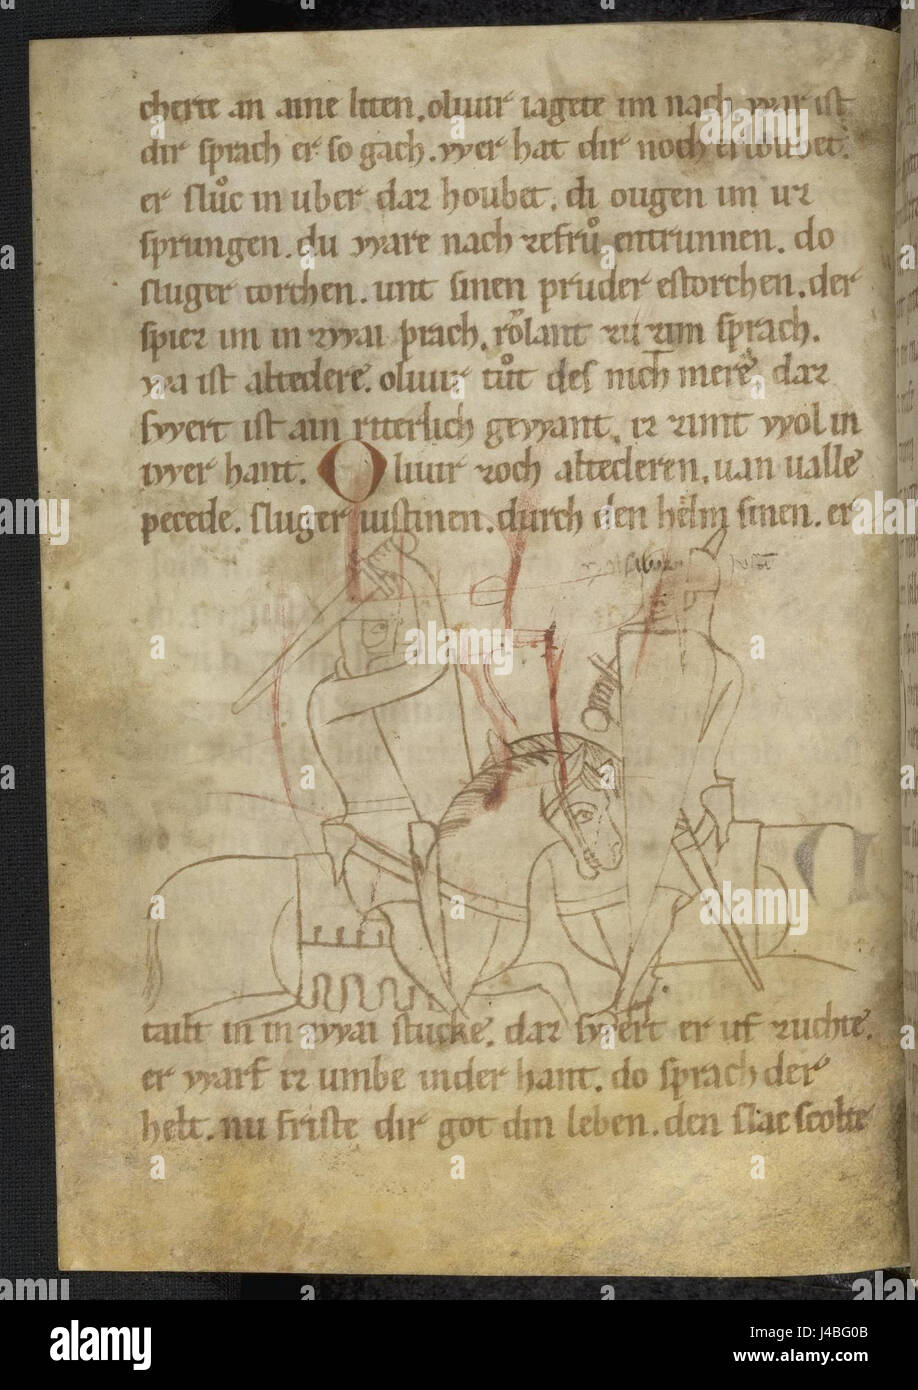 cherte an aine liten. oliuir iagete im nach. war ist
dir sprach er so gach. wer hat dir noch erloubet.
er sluͦc in uber daz houbet. di ougen im uz
sprungen. du ware nach zefruͦ entrunnen. do
sluger torchen. unt sinen pruder estorchen. der
spiez im in zwai prach. roͮlant zu zim sprach.
wa ist alteclere. oliuir tuͦt des nich mere. daz
swert ist ain riterlich gewant. iz zimt wol in
iwer hant. Oliuir zoch altecleren. uan ualle
pecede. sluger iustinen. durch den helm sinen. er
tailt in in zwai stucke. daz swert er uf zuchte.
er warf iz umbe in der hant. do sprach der
helt. nu friste dir got din leben. den slac scolte
alamy stock photo
J4BG0B
www.alamy.com